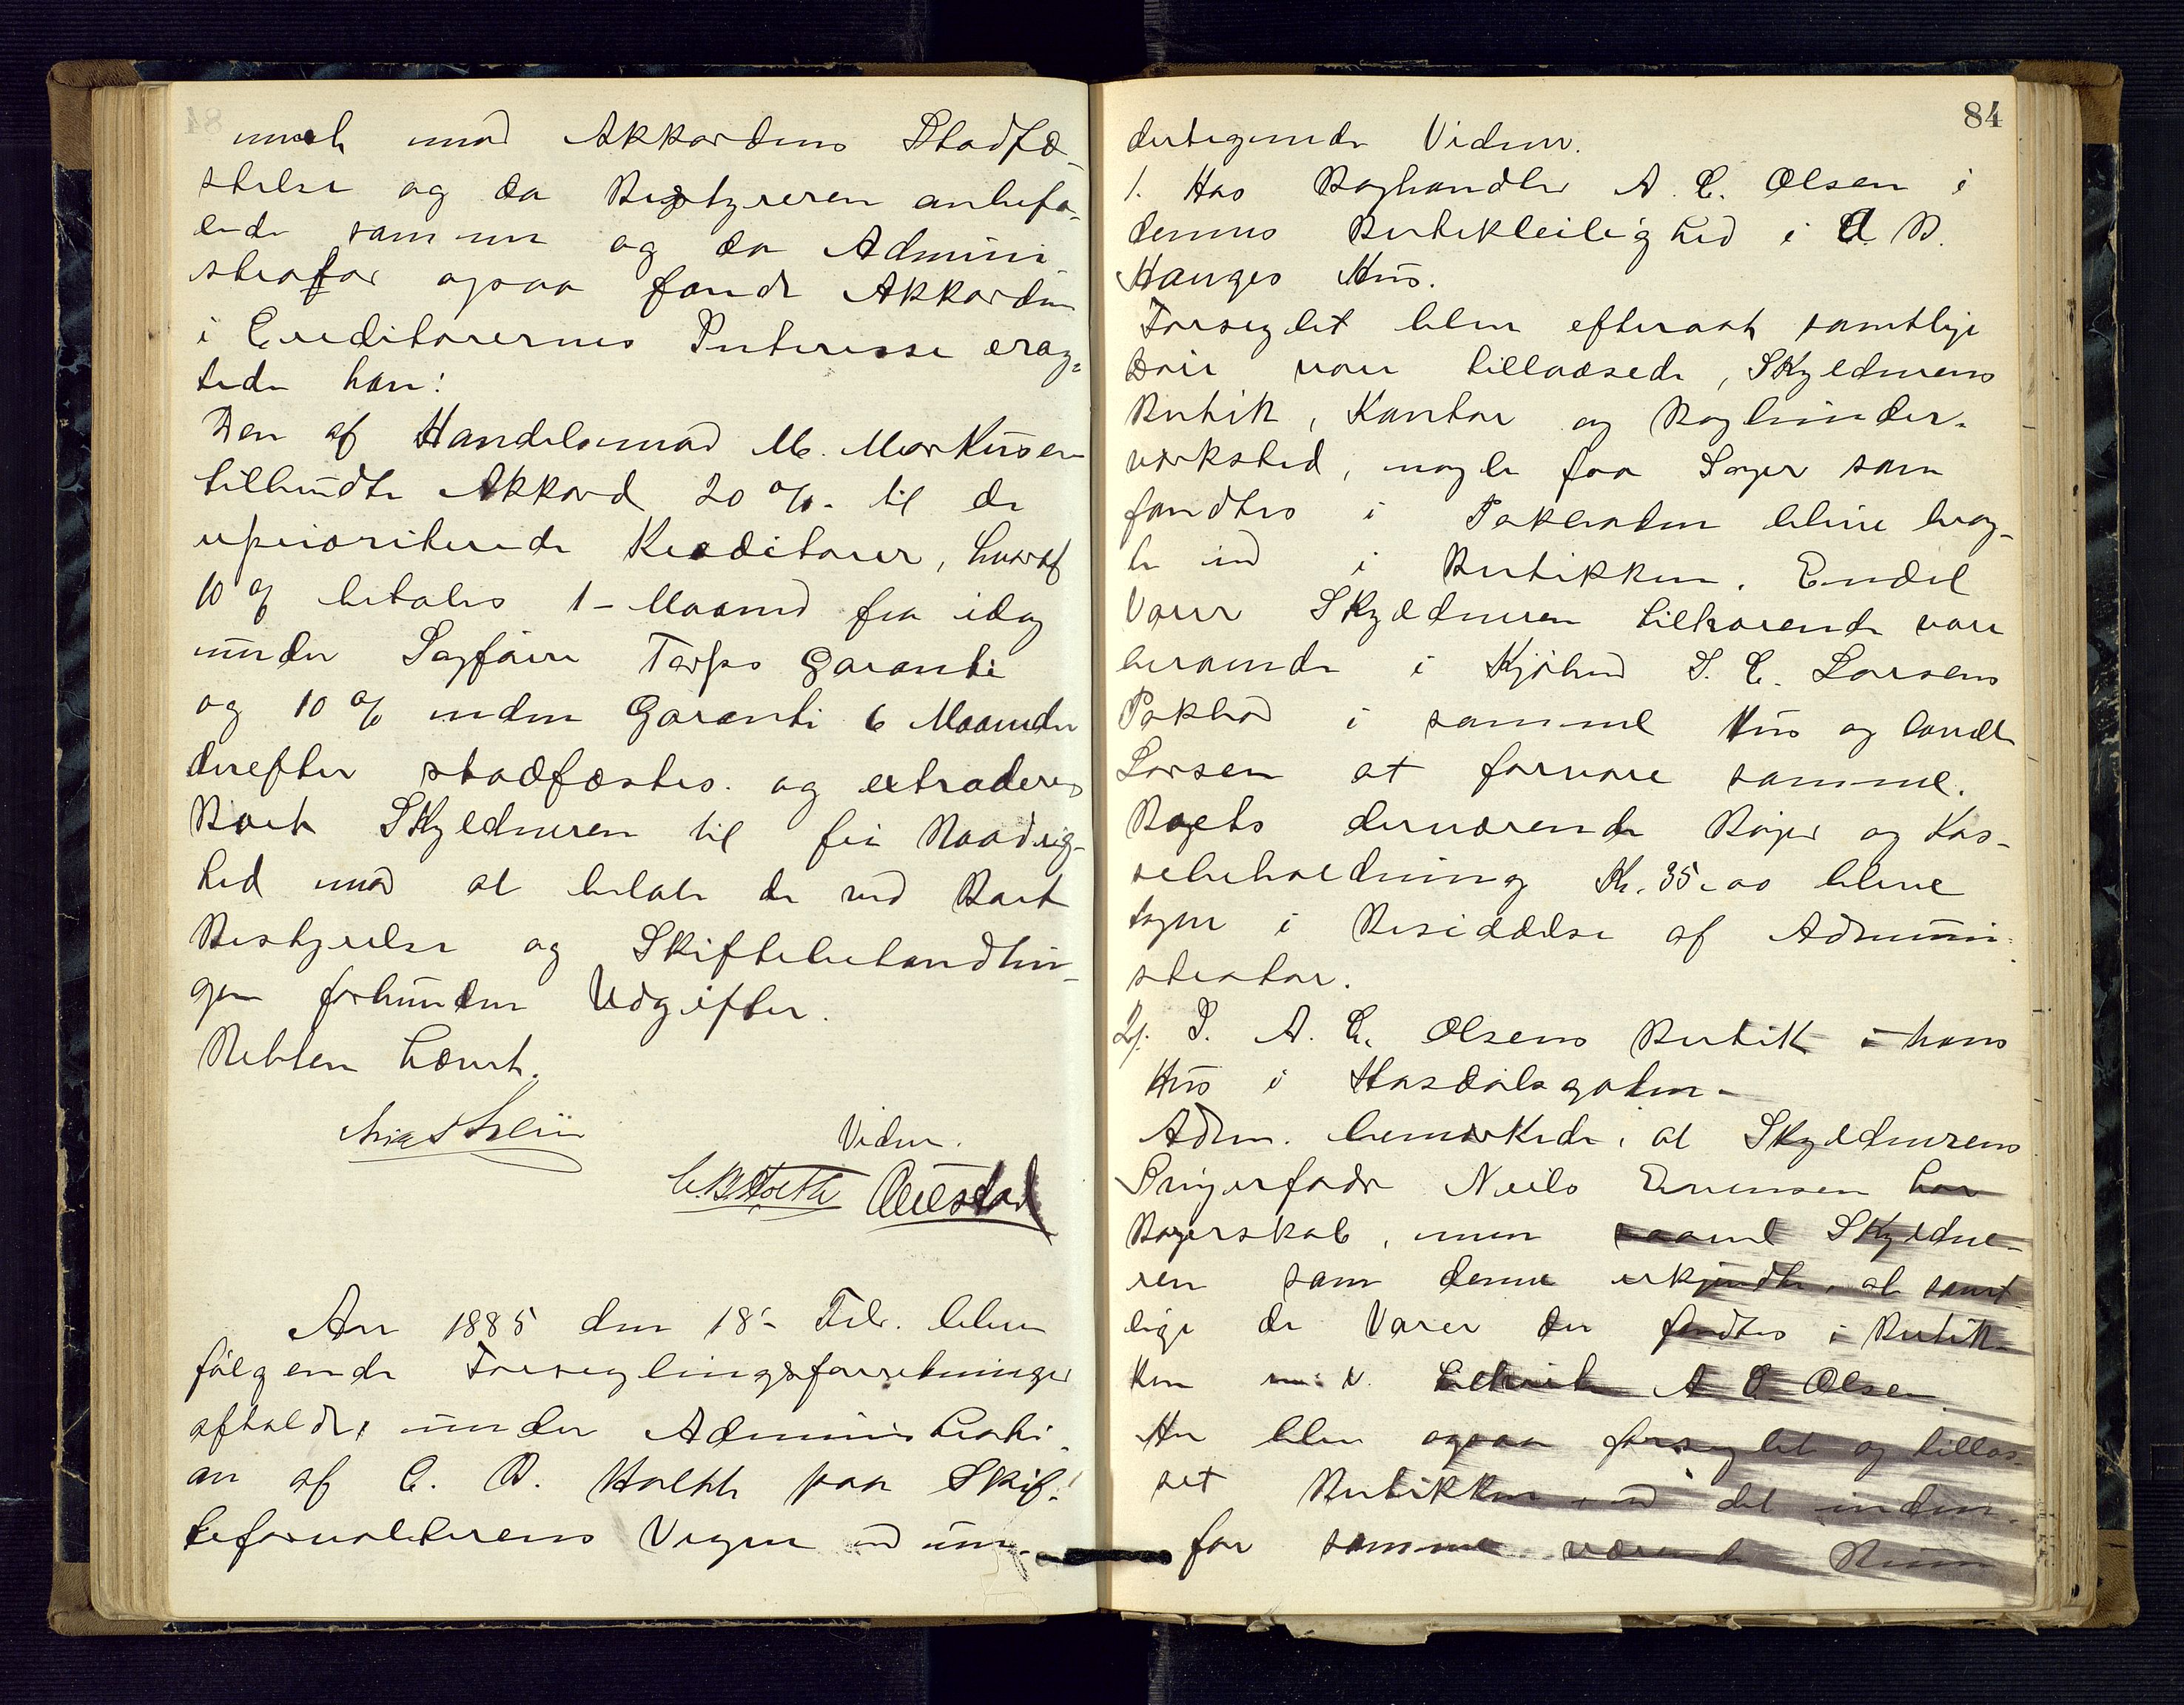 meldt mod Akkordens Stadfæ-
stelse og da Bestyreren anbefa-
lede samme og da Admini-
strator ogsaa fandt Akkorden
i Creditorernes Interesse erag-
tede han:
Den af Handelsmand M. Markusen
tilbudte Akkord 20 %. til de
uprioriterede Kreditorer, hvoraf
10 % betales 1 Maaned fra idag
under Sagfører Tarps Garanti
og 10 % uden Garanti 6 Maaneder
derefter stadfæstes. og extraderes
Boet Skyldneren til fri Raadig-
hed mod at betale de ved Boet
Bestyrelse og Skiftebehandlin-
gen forbundne Udgifter.
Retten hævet.
Vidner.
C. B. Holth
Ao 1885 den 18de Febr. blev
følgende Forseglingsforretninger
afholdt under Administrati-
on af C. B. Holth paa Skif-
teforvalterens Vegne ved un-
84
dertegnede Vidner.
1. Hos Boghandler A. C. Olsen i
dennes Butikleilighed i B.
Hauges Hus.
Forseglet blev efterat samtlige
Døre vare tillaasede, Skyldnerens
Butik, Kontor og Bogbinder-
værksted, nogle faa Sager som
fandtes i Pakboden bleve brag-
te ind i Butikken. Endel
Varer Skyldneren tilhørende vare
beroende i Kjøbmd I. C. Larsens
Pakbod i samme Hus og lovede
Larsen at forvare samme.
Boets derværende Bøger og Kas-
sebeholdning Kr. 35.00 bleve
tagen i Besiddelse af Admini-
strator.
2. I A. C. Olsens Butik i hans
Hus i Hasdalsgaten
Adm. bemærkede, at Skyldnerens
Svigerfader Neils Evensen har
Borgerskab, men saavel Skyldne-
ren som denne erkjendte, at samt-
lige de Varer der fandtes i Butik-
ken tilhørte A C. Olsen
Her blev ogsaa forseglet og tillaa-
set Butikken, ved det inden-
for samme værende Rum